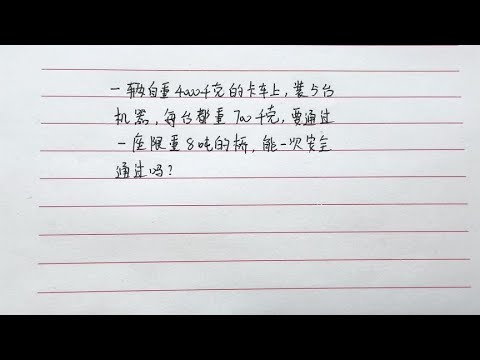 一辆自重4000千克的卡车上，装5台
机器，每台都重700千克，要通过
一座限重8吨的桥，能一次安全
通过吗？